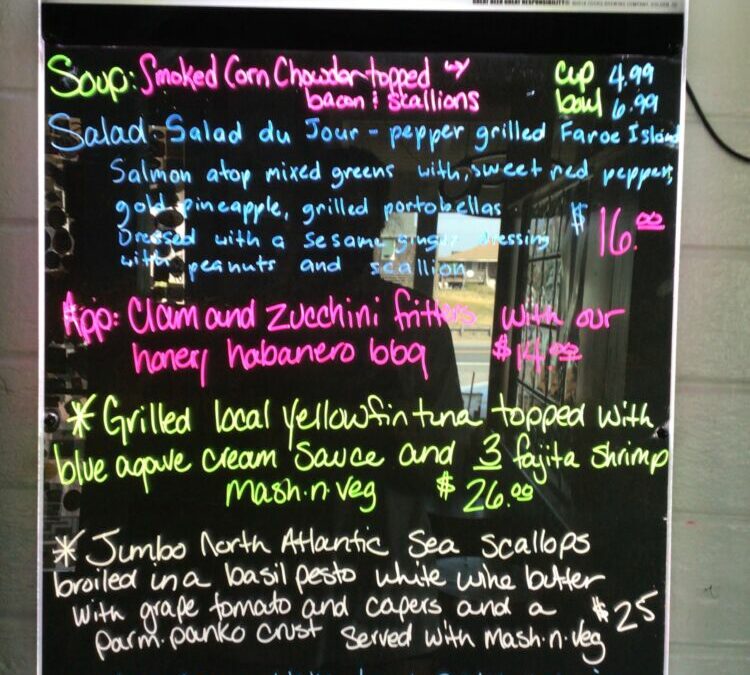 Soup: Smoked Corn Chowder topped w/
bacon & scallions
cup 4.99
bowl 6.99
Salad- Salad du Jour - pepper grilled Faroe Island
Salmon atop mixed greens with sweet red peppers,
gold pineapple, grilled portobellas
Dressed with a sesame ginger dressing
with peanuts and scallion
$16.00
App: Clam and zucchini fritters with our
honey habanero bbq $14.00
* Grilled local yellowfin tuna topped with
blue agave cream sauce and 3 fajita shrimp
Mash.n.veg $26.00
* Jumbo North Atlantic Sea Scallops
broiled in a basil pesto white wine butter
with grape tomato and capers and a $25
parm.panko crust served with Mash.n.veg